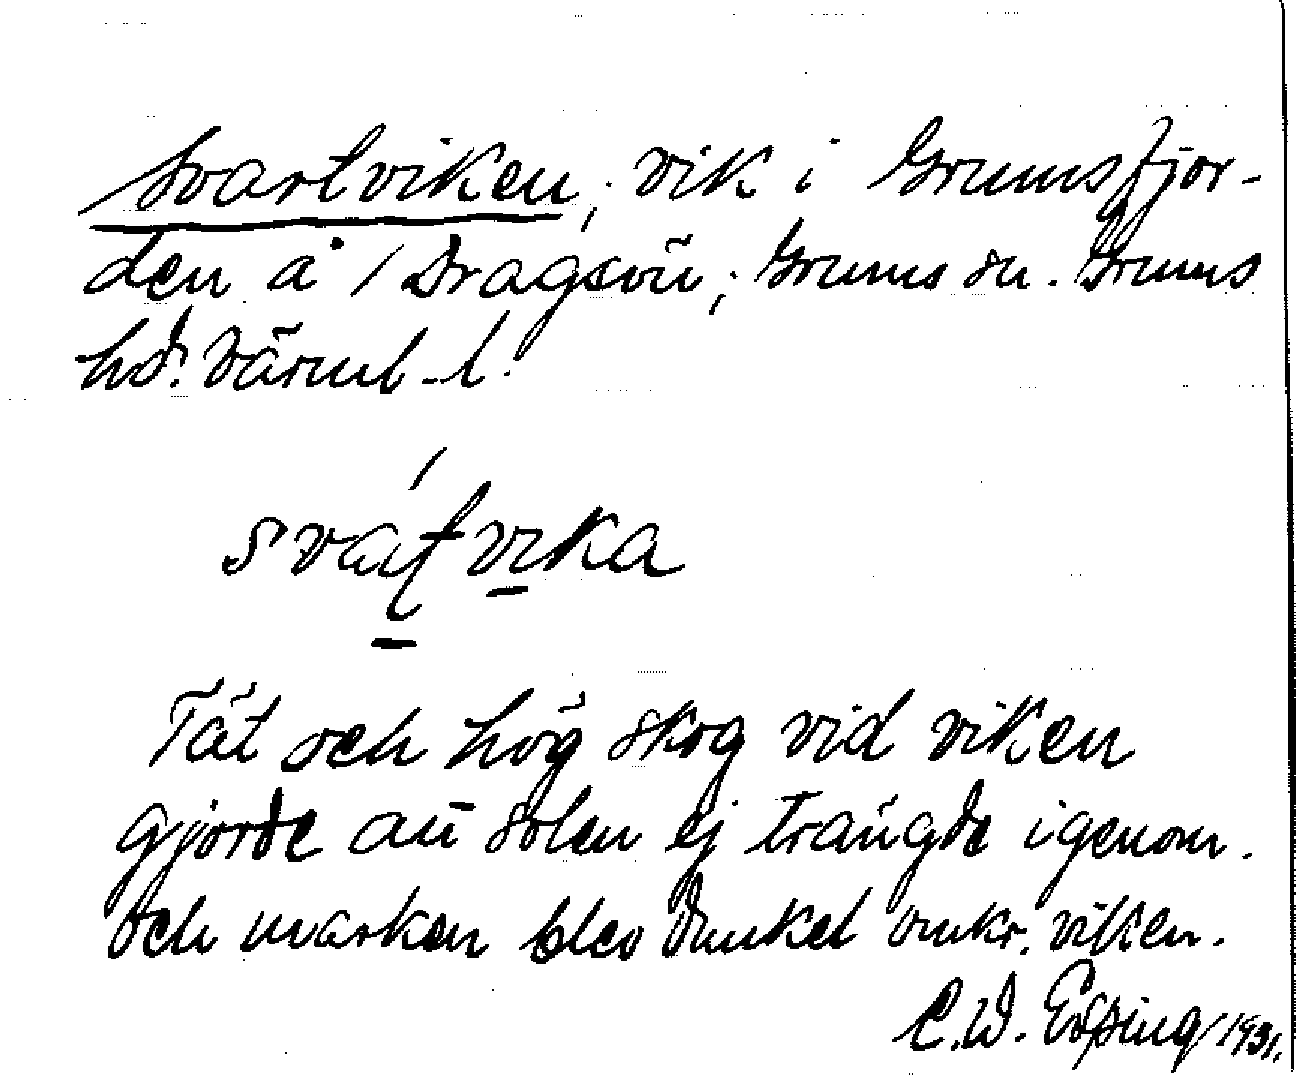 Svartviken, vik i Grumsfjor-
den å / Dragsön, Grums sn. Grums
hd. Värml. l.
svat̠vi̠ka
Tät och hög skog vid viken
gjorde att solen ej trängde igenom.
Och marken blev dunkel omkr. viken.
C. W. Esping 1931.